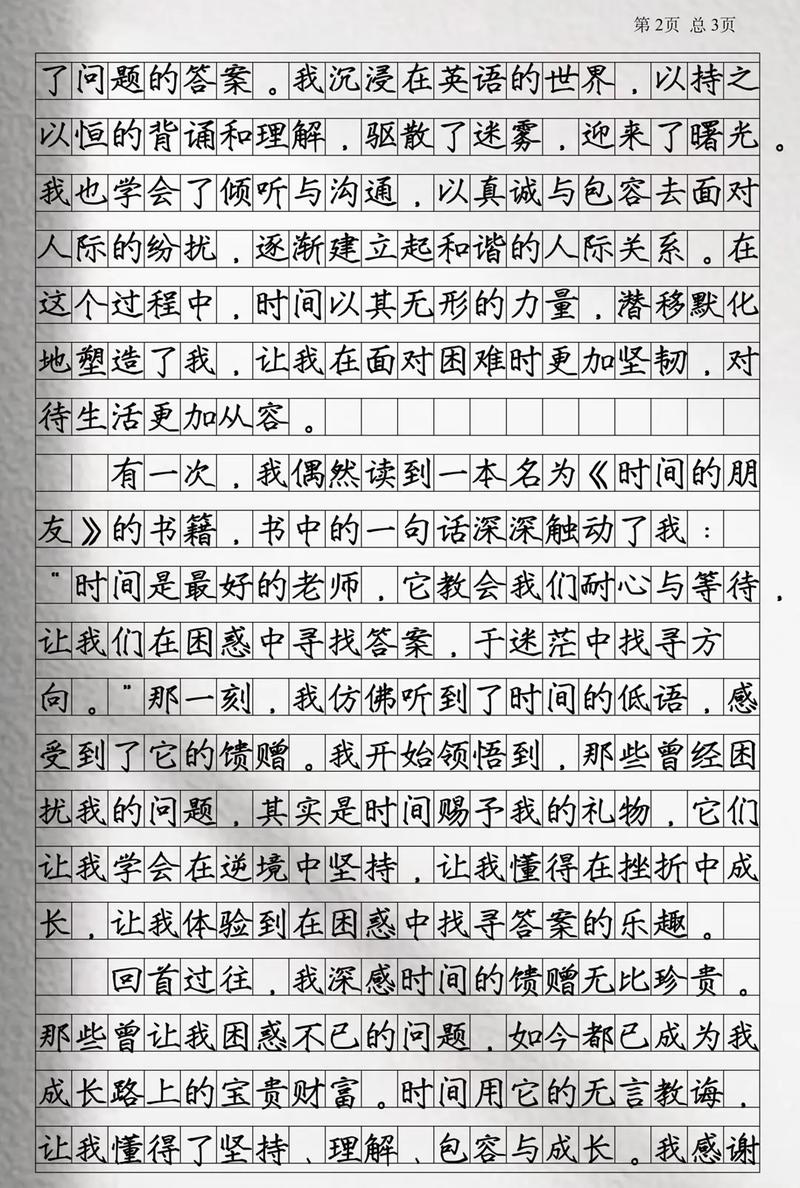 第2页 总3页
了问题的答案。我沉浸在英语的世界，以持之
以恒的背诵和理解，驱散了迷雾，迎来了曙光。
我也学会了倾听与沟通，以真诚与包容去面对
人际的纷扰，逐渐建立起和谐的人际关系。在
这个过程中，时间以其无形的力量，潜移默化
地塑造了我，让我在面对困难时更加坚韧，对
待生活更加从容。
有一次，我偶然读到一本名为《时间的朋
友》的书籍，书中的一句话深深触动了我：
“时间是最好的老师，它教会我们耐心与等待，
让我们在困惑中寻找答案，于迷茫中找寻方
向。”那一刻，我仿佛听到了时间的低语，感
受到了它的馈赠。我开始领悟到，那些曾经困
扰我的问题，其实是时间赐予我的礼物，它们
让我学会在逆境中坚持，让我懂得在挫折中成
长，让我体验到在困惑中找寻答案的乐趣。
回首过往，我深感时间的馈赠无比珍贵。
那些曾让我困惑不已的问题，如今都已成为我
成长路上的宝贵财富。时间用它的无言教诲，
让我懂得了坚持、理解、包容与成长。我感谢